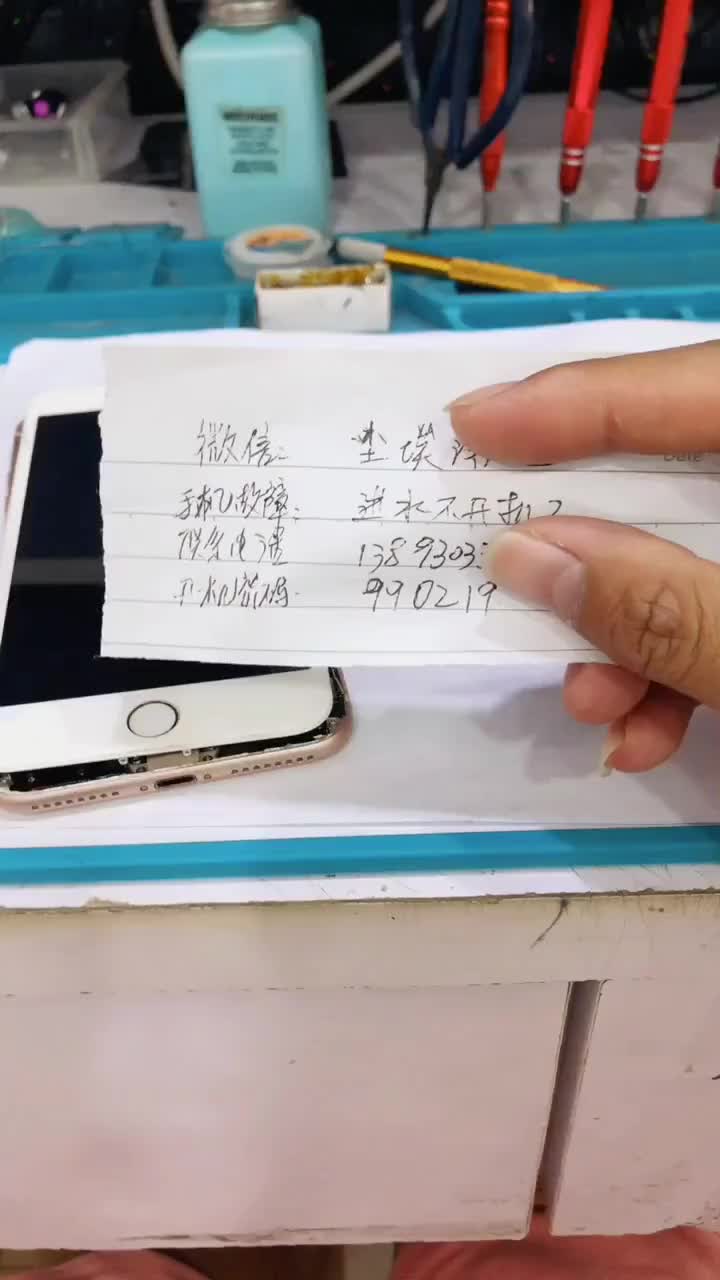 微信: 尘埃
手机故障: 进水不开机
联系电话 1389303
开机密码 990219
Date